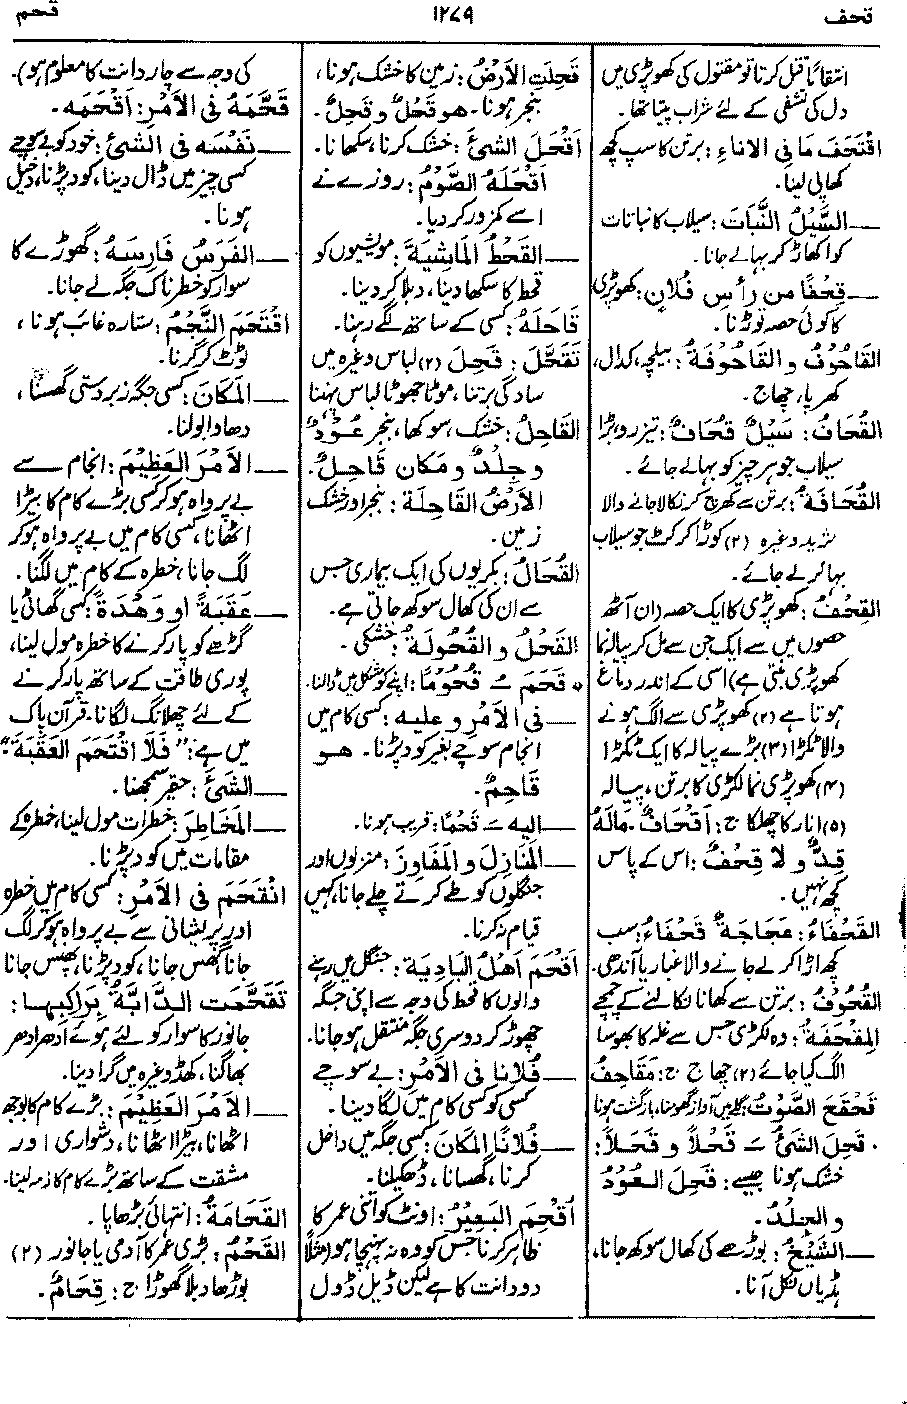 قحف
۱۲۷۹
قحم
انتقاماً قتل کرتا تو مقتول کی کھوپڑی میں
دل کی تشفی کے لئے شراب پیتا تھا۔
اقْتَحَفَ مَا فِی الاناءِ: برتن کا سب کچھ
کھا پی لینا۔
—السَّیْلُ النَّبَاتَ: سیلاب کا نباتات
کو اکھاڑ کر بہالے جانا۔
—قِحْفًا من رأسِ فُلَانٍ: کھوپڑی
کا کوئی حصہ توڑنا۔
القَاحُوْفُ و القَاحُوفَةُ: بیلچہ، کدال،
کھرپا، چھاج۔
القُحَافُ: سَیْلٌ قُحَافٌ: تیز رو بڑا
سیلاب جو ہر چیز کو بہالے جائے۔
القُحَافَةُ: برتن سے کھرچ کر نکالا جانے والا
ثرید وغیرہ (۲) کوڑا کرکٹ جو سیلاب
بہا کر لے جائے۔
القِحْفُ: کھوپڑی کا ایک حصہ (ان آٹھ
حصوں میں سے ایک جن سے مل کر پیالہ نما
کھوپڑی بنتی ہے) اسی کے اندر دماغ
ہوتا ہے (۲) کھوپڑی سے الگ ہونے
والا ٹکڑا (۳) بڑے پیالہ کا ایک ٹکڑا
(۴) کھوپڑی نما لکڑی کا برتن، پیالہ
(۵) انار کا چھلکا ج: اَقْحَافٌ۔ مَالَهُ
قِدٌّ و لا قِحْفٌ: اس کے پاس
کچھ نہیں۔
القَحْفَاءُ: عَجَاجَةٌ قَحْفَاءُ: سب
کچھ اڑا کر لے جانے والا غبار یا آندھی۔
القُحُوْفُ: برتن سے کھانا نکالنے کے چمچے
المِقْحَفَةُ: وہ لکڑی جس سے غلہ کا بھوسا
الگ کیا جائے (۲) چھاج ج: مَقَاحِفُ
تَحَقْحَعَ الصَّوْتُ: گلے میں آواز گھومنا، بازگشت ہونا
• قَحِلَ الشَّیْءُ ـَ قَحْلًا و قَحَلًا:
خشک ہونا جیسے: قَحِلَ العُوْدُ
و الجِلْدُ۔
—الشَّیْخُ: بوڑھے کی کھال سوکھ جانا،
ہڈیاں نکل آنا۔
قَحِلَتِ الأرْضُ: زمین کا خشک ہونا،
بنجر ہونا۔ هو قَحْلٌ و قَحِلٌ۔
اَقْحَلَ الشَّیْءَ: خشک کرنا، سکھانا۔
اَقْحَلَهُ الصَّوْمُ: روزے نے
اسے کمزور کر دیا۔
—القَحْطُ المَاشِیَةَ: مویشیوں کو
قحط کا سکھا دینا، دبلا کر دینا۔
قَاحَلَهُ: کسی کے ساتھ لگے رہنا۔
تَقَحَّلَ: قَحِلَ (۲) لباس وغیرہ میں
سادگی برتنا، موٹا جھوٹا لباس پہننا
القَاحِلُ: خشک، سوکھا، بنجر عُوْدٌ
و جِلْدٌ و مَکَان قَاحِلٌ۔
الأرْضُ القَاحِلَة: بنجر اور خشک
زمین۔
القُحَالُ: بکریوں کی ایک بیماری جس
سے ان کی کھال سوکھ جاتی ہے۔
القَحْلُ و القُحُولَةُ: خشکی۔
• قَحَمَ ـُ قُحُوْمًا: اپنے کو مشکل میں ڈالنا۔
—فی الأمْرِ و علیه: کسی کام میں
انجام سوچے بغیر کود پڑنا۔ هو
قَاحِمٌ۔
—الیه ـَ قَحْمًا: قریب ہونا۔
—المَنَازِلَ و المَفَاوِزَ: منزلوں اور
جنگلوں کو طے کرتے چلے جانا، کہیں
قیام نہ کرنا۔
اَقْحَمَ اَهْلُ البَادِیَة: جنگل میں رہنے
والوں کا قحط کی وجہ سے اپنی جگہ
چھوڑ کر دوسری جگہ منتقل ہو جانا۔
—فُلَانًا فی الأمْرِ: بے سوچے
کسی کو کسی کام میں لگا دینا۔
—فُلَانًا المَکَانَ: کسی جگہ میں داخل
کرنا، گھسانا، دھکیلنا۔
اُقْحِمَ البَعِیْرُ: اونٹ کو اتنی عمر کا
ظاہر کرنا جس کو وہ نہ پہنچا ہو (مثلاً
دو دانت کا ہے لیکن ڈیل ڈول
کی وجہ سے چار دانت کا معلوم ہو)۔
قَحَّمَهُ فی الأمْرِ: اَقْحَمَه۔
—نَفْسَه فی الشَّیْءِ: خود کو بے سوچے
کسی چیز میں ڈال دینا، کود پڑنا، دخیل
ہونا۔
—الفَرَسُ فَارِسَهُ: گھوڑے کا
سوار کو خطرناک جگہ لے جانا۔
اقْتَحَمَ النَّجْمُ: ستارہ غائب ہونا،
ٹوٹ کر گرنا۔
—المَکَانَ: کسی جگہ زبردستی گھسنا،
دھاوا بولنا۔
—الأمْرَ العَظِیْمَ: انجام سے
بے پرواہ ہو کر کسی بڑے کام کا بیڑا
اٹھانا، کسی کام میں بے پرواہ ہو کر
لگ جانا، خطرہ کے کام میں لگنا۔
—عَقَبَةً او وَهْدَةً: کسی گھاٹی یا
گڑھے کو پار کرنے کا خطرہ مول لینا،
پوری طاقت کے ساتھ پار کرنے
کے لئے چھلانگ لگانا، قرآن پاک
میں ہے: "فَلَا اقْتَحَمَ العَقَبَةَ"
—الشَّیْءَ: حقیر سمجھنا۔
—المَخَاطِرَ: خطرات مول لینا، خطرہ کے
مقامات میں کود پڑنا۔
انْقَحَمَ فی الأمْرِ: کسی کام میں خطرہ
اور پریشانی سے بے پرواہ ہو کر لگ
جانا گھس جانا، کود پڑنا، پھنس جانا
تَقَحَّمَت الدَّابَّةُ بِرَاکِبِها:
جانور کا سوار کو لئے ہوئے اِدھر اُدھر
بھاگنا، کھڈ وغیرہ میں گرا دینا۔
—الأمْرَ العَظِیْمَ: بڑے کام کا بوجھ
اٹھانا، بیڑا اٹھانا، دشواری اور
مشقت کے ساتھ بڑے کام کا ذمہ لینا۔
القَحَامَةُ: انتہائی بڑھاپا۔
القَحْمُ: بڑی عمر کا آدمی یا جانور (۲)
بوڑھا دبلا گھوڑا ج: قِحَامٌ۔